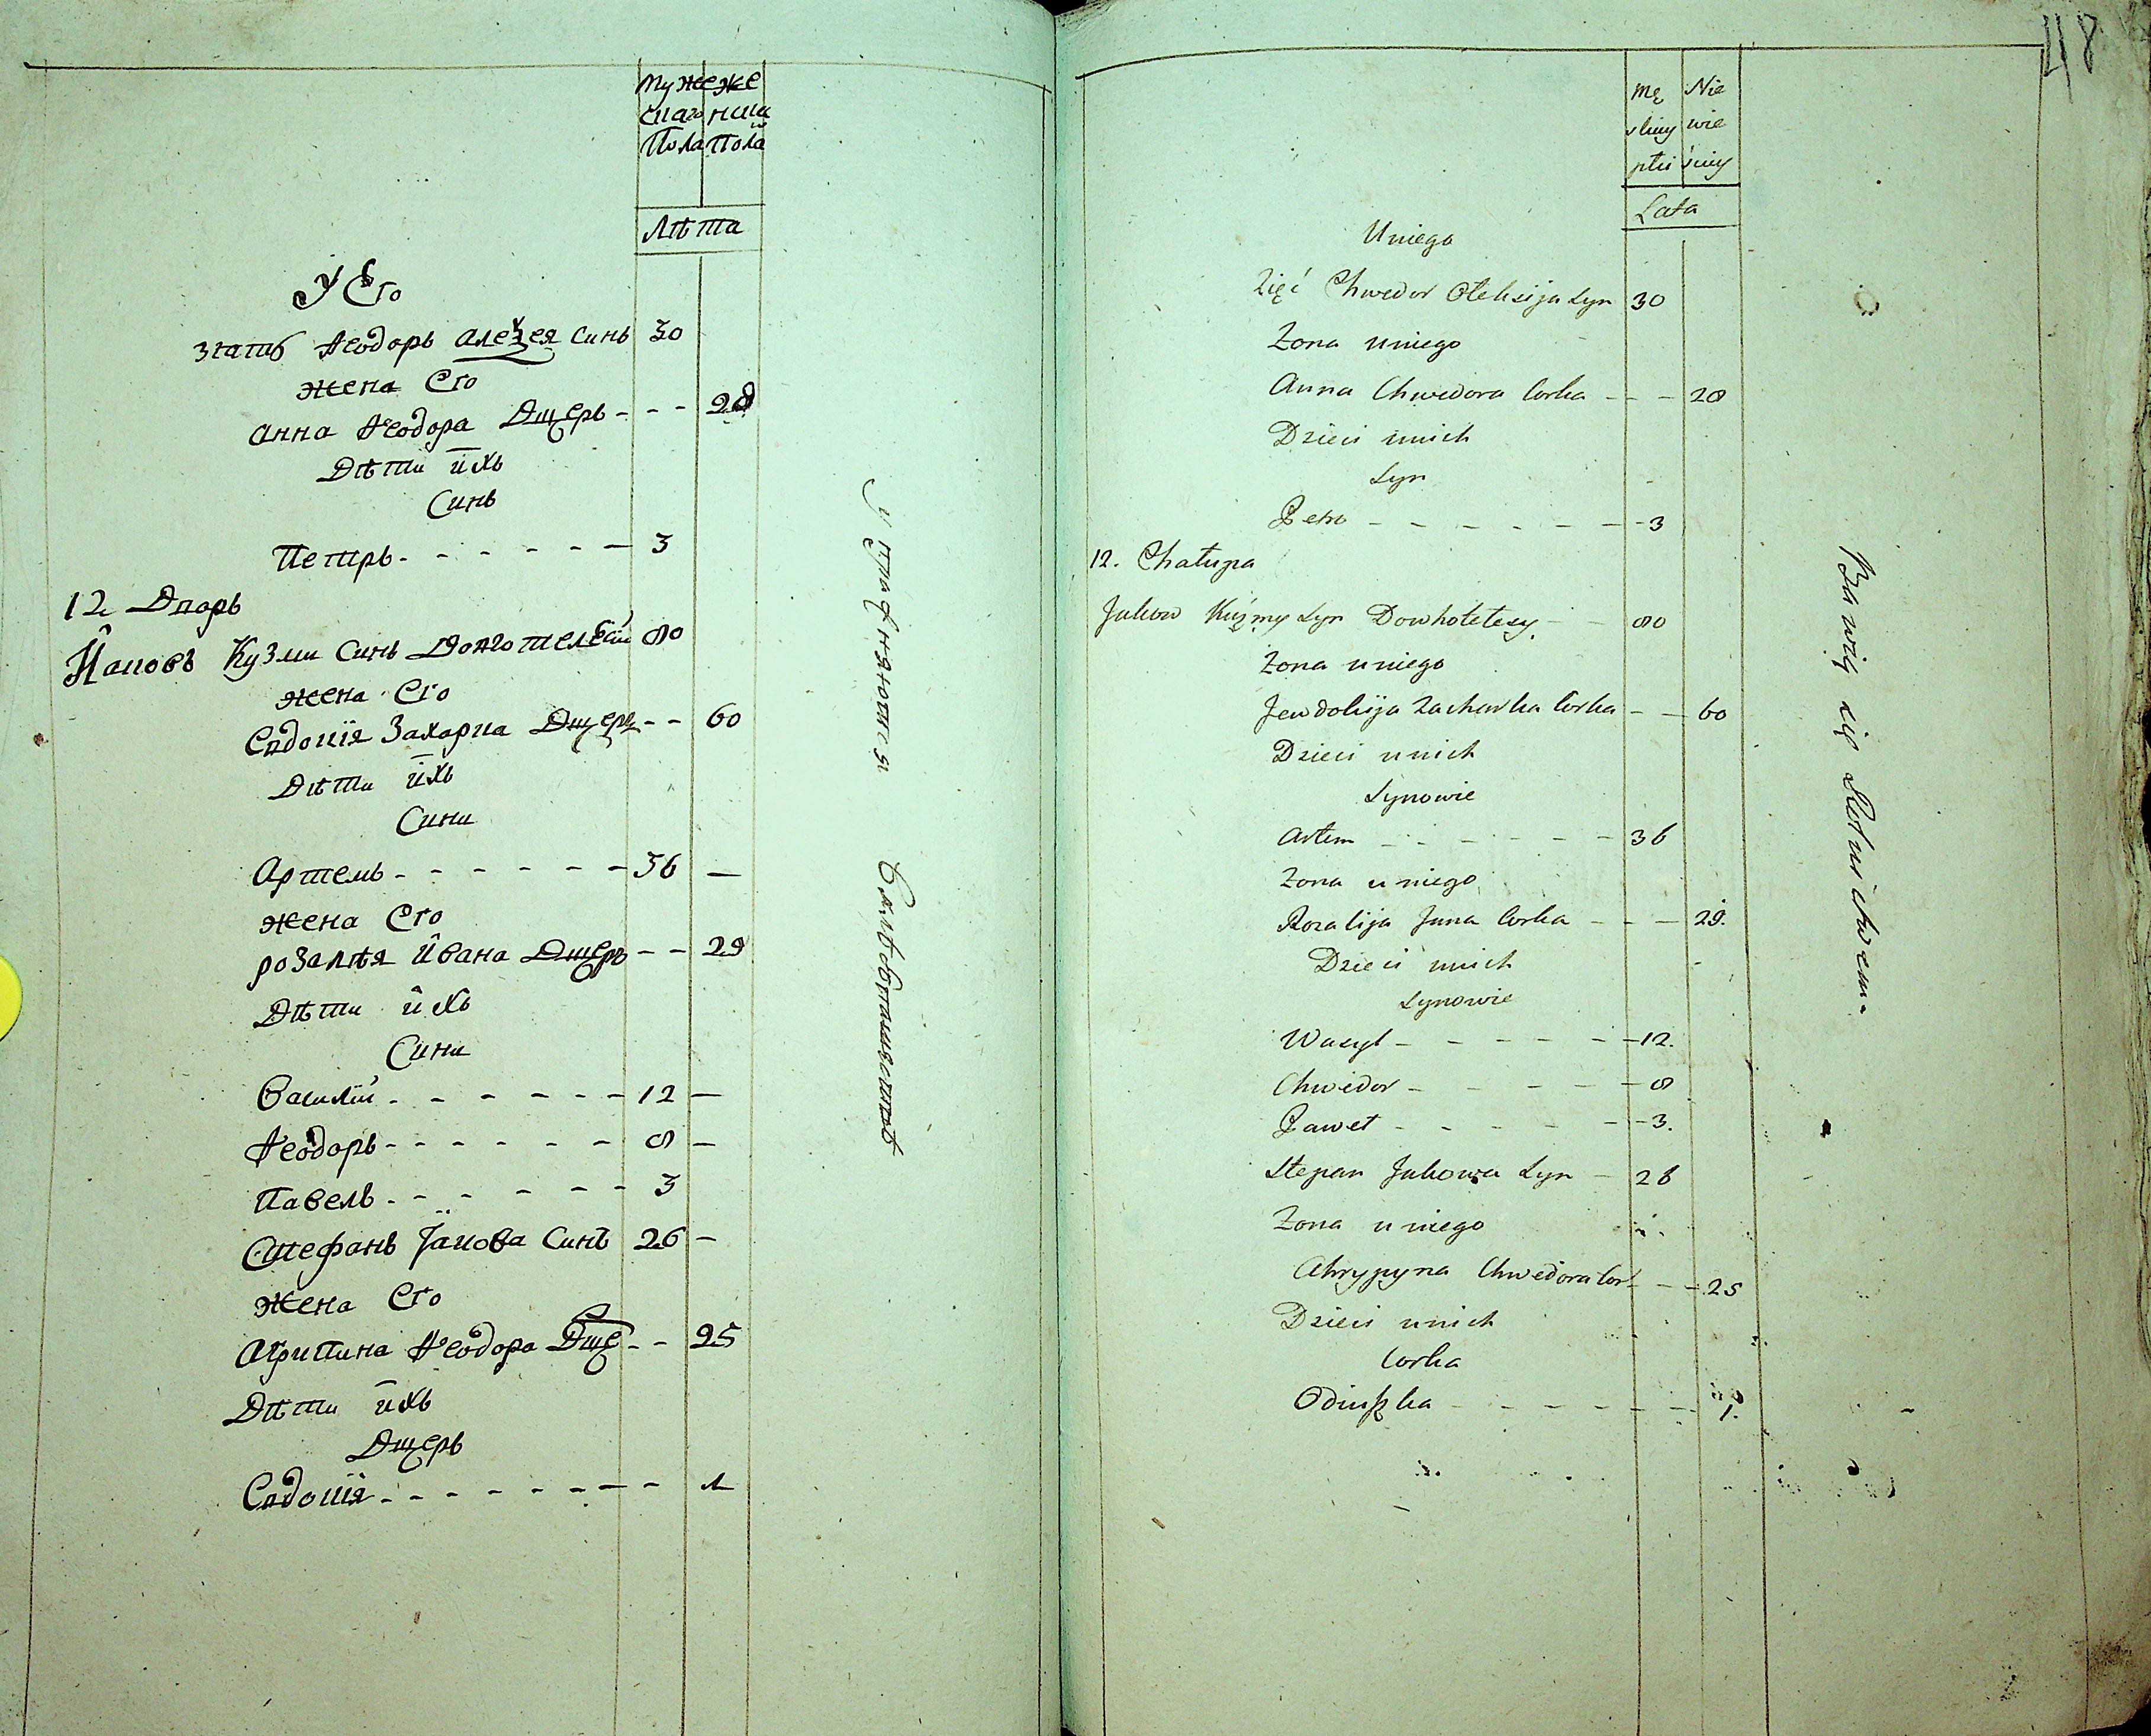 Муже же
скаго нска
Пола Пола
Лѣта
У Его
зтать Ѳеодоръ Алеѯея Синъ 30
жена Его
Анна Ѳеодора Дщерь - - - 28
Дѣти ихъ
Синъ
Петръ - - - - - - 3
12 Дворъ
Іаковъ Кузми Синъ Долготелесій 80
жена Его
Евдокія Захарка Дщерь - - 60
Дѣти ихъ
Сини
Артемъ - - - - - - 36 —
жена Его
розалѣя Ивана Дщерь - - 29
Дѣти ихъ
Сини
Василій - - - - - - 12 —
Ѳеодоръ - - - - - - 8 —
Павелъ - - - - - - 3
Стефанъ Іакова Синъ 26 —
жена Его
Агрипина Ѳеодора Дще - - 25
Дѣти ихъ
Дщерь
Евдокія - - - - - - - - 1
Упражняются Хлѣбопашествомъ
48
Mę Nie
skiey wie
płci ściey
Lata
U niego
Zięć Chwedor Oleksija Syn 30
Żona u niego
Anna Chwedora Corka - - 28
Dzieci u nich
Syn
Petro - - - - - - 3
12. Chałupa
Jakow Kuźmy Syn Dowhotelesy - - 80
Żona u niego
Jewdokija Zacharka Corka - - 60
Dzieci u nich
Synowie
Artem - - - - - - 36
Żona u niego
Rozalija Jwna Corka - - - 29.
Dzieci u nich
Synowie
Wasyl - - - - - - 12.
Chwedor - - - - - 8
Paweł - - - - - - 3.
Stepan Jakowa Syn - 26
Żona u niego
Ahrypyna Chwedora Cor - - - 25
Dzieci u nich
Corka
Odiuszka - - - - - - - 1.
Bawią się Rolnictwem -